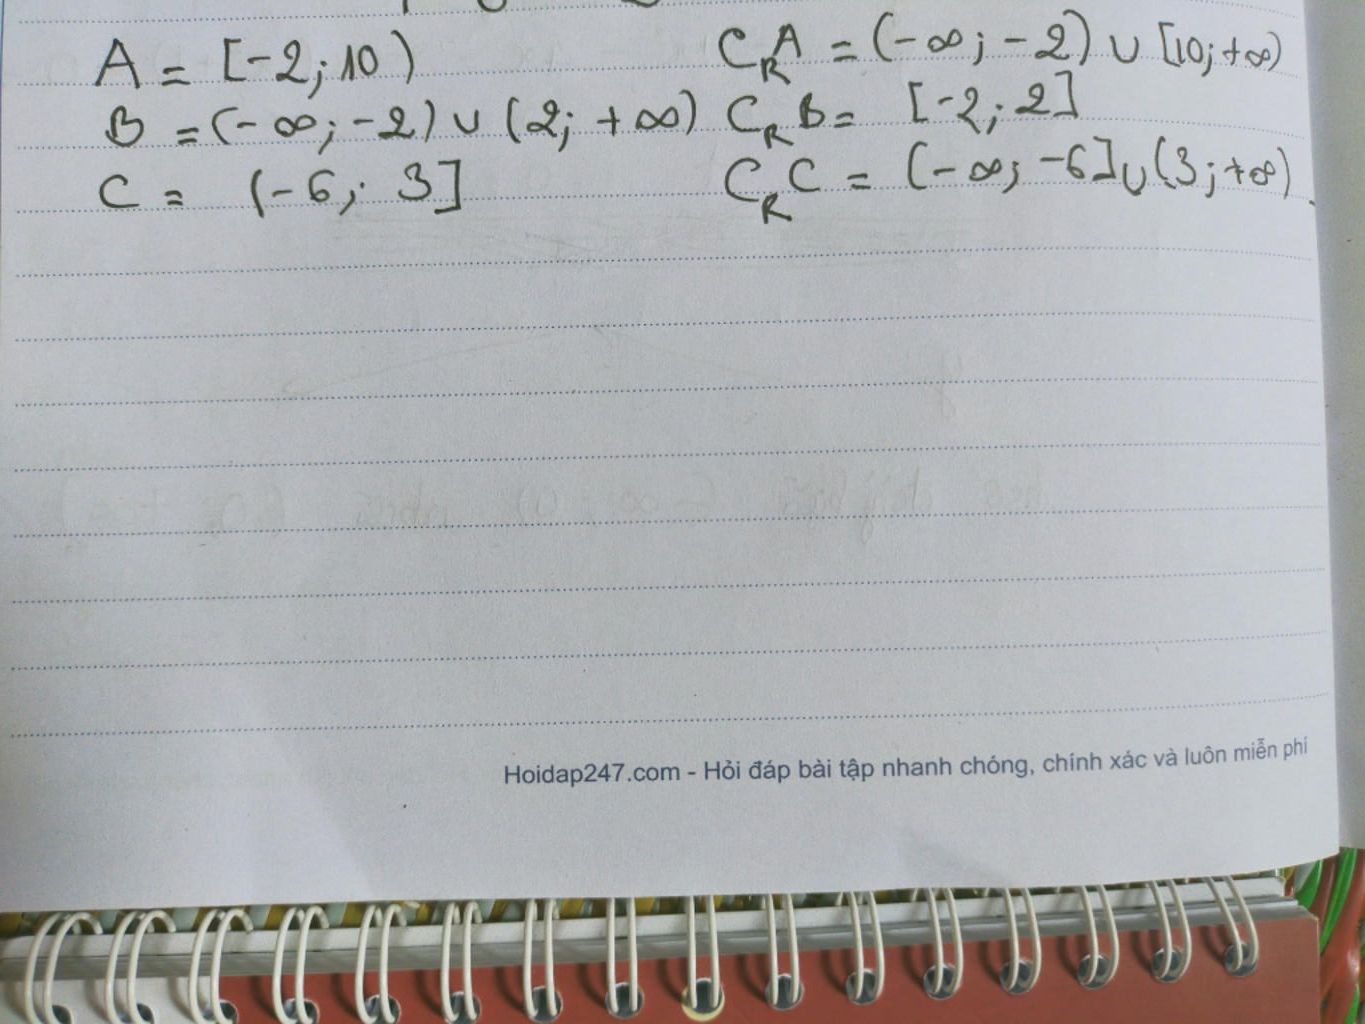 A = [-2; 10) C_R A = (-∞; -2) ∪ [10; +∞)
B = (-∞; -2) ∪ (2; +∞) C_R B = [-2; 2]
C = (-6; 3] C_R C = (-∞; -6] ∪ (3; +∞)
Hoidap247.com - Hỏi đáp bài tập nhanh chóng, chính xác và luôn miễn phí